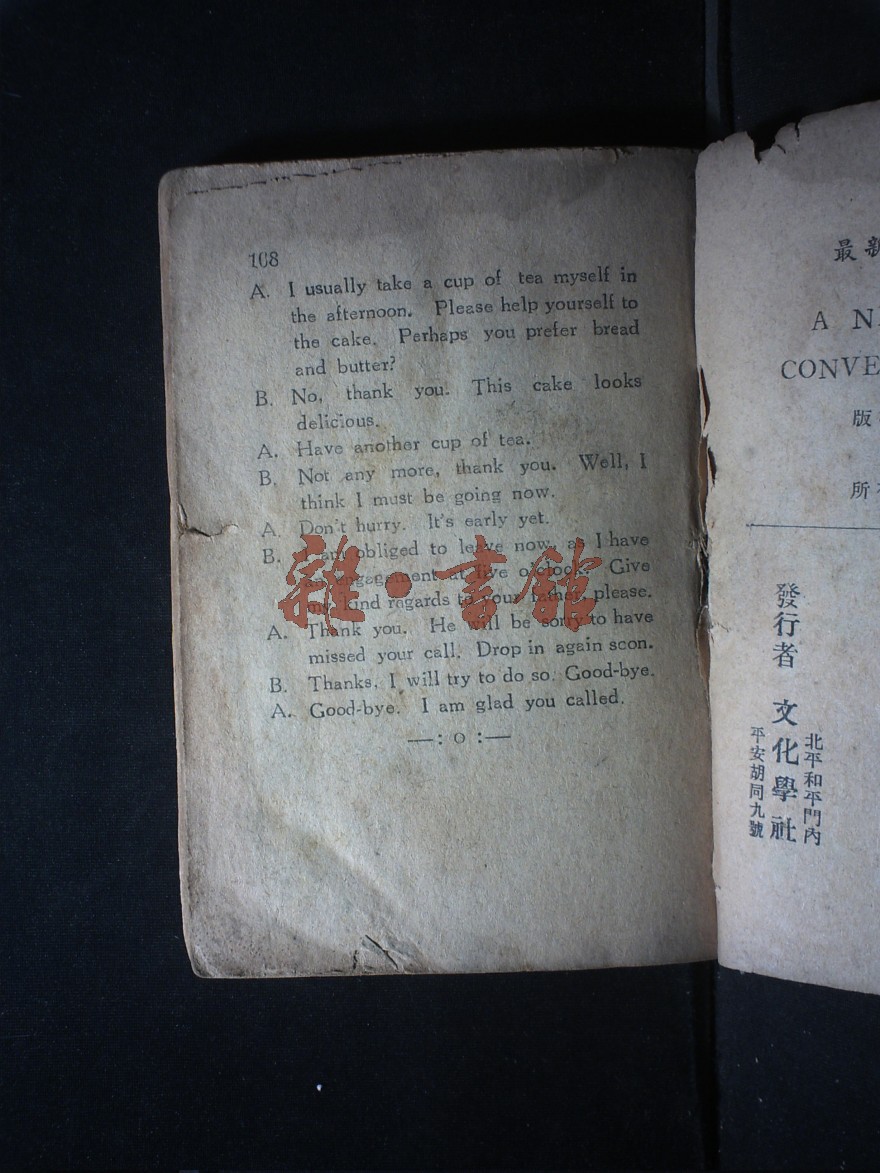 108
A. I usually take a cup of tea myself in
the afternoon. Please help yourself to
the cake. Perhaps you prefer bread
and butter?
B. No, thank you. This cake looks
delicious.
A. Have another cup of tea.
B. Not any more, thank you. Well, I
think I must be going now.
A. Don't hurry. It's early yet.
B. I am obliged to leave now, as I have
an engagement at five o'clock. Give
my kind regards to your father, please.
A. Thank you. He will be sorry to have
missed your call. Drop in again soon.
B. Thanks, I will try to do so. Good-bye.
A. Good-bye. I am glad you called.
—: o :—
雜·書館
最新
A N
CONVE
版
所
發行者 文化學社
北平和平門內
平安胡同九號